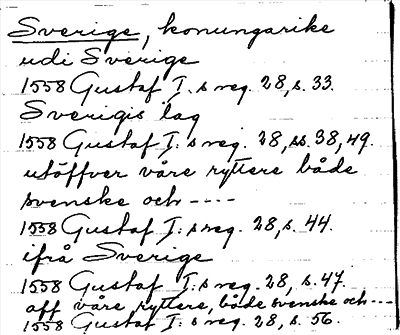 Sverige, konungarike
udi Sverige
1558 Gustaf I: s reg. 28, s. 33.
Sverigis lag
1558 Gustaf I: s reg. 28, ss. 38, 49.
utöffver våre ryttere både
svenske och ----
1558 Gustaf I: s reg. 28, s. 44.
ifrå Sverige
1558 Gustaf I: s reg. 28, s. 47.
aff våre ryttere, både svenske och ---
1558 Gustaf I: s reg. 28, s. 56.